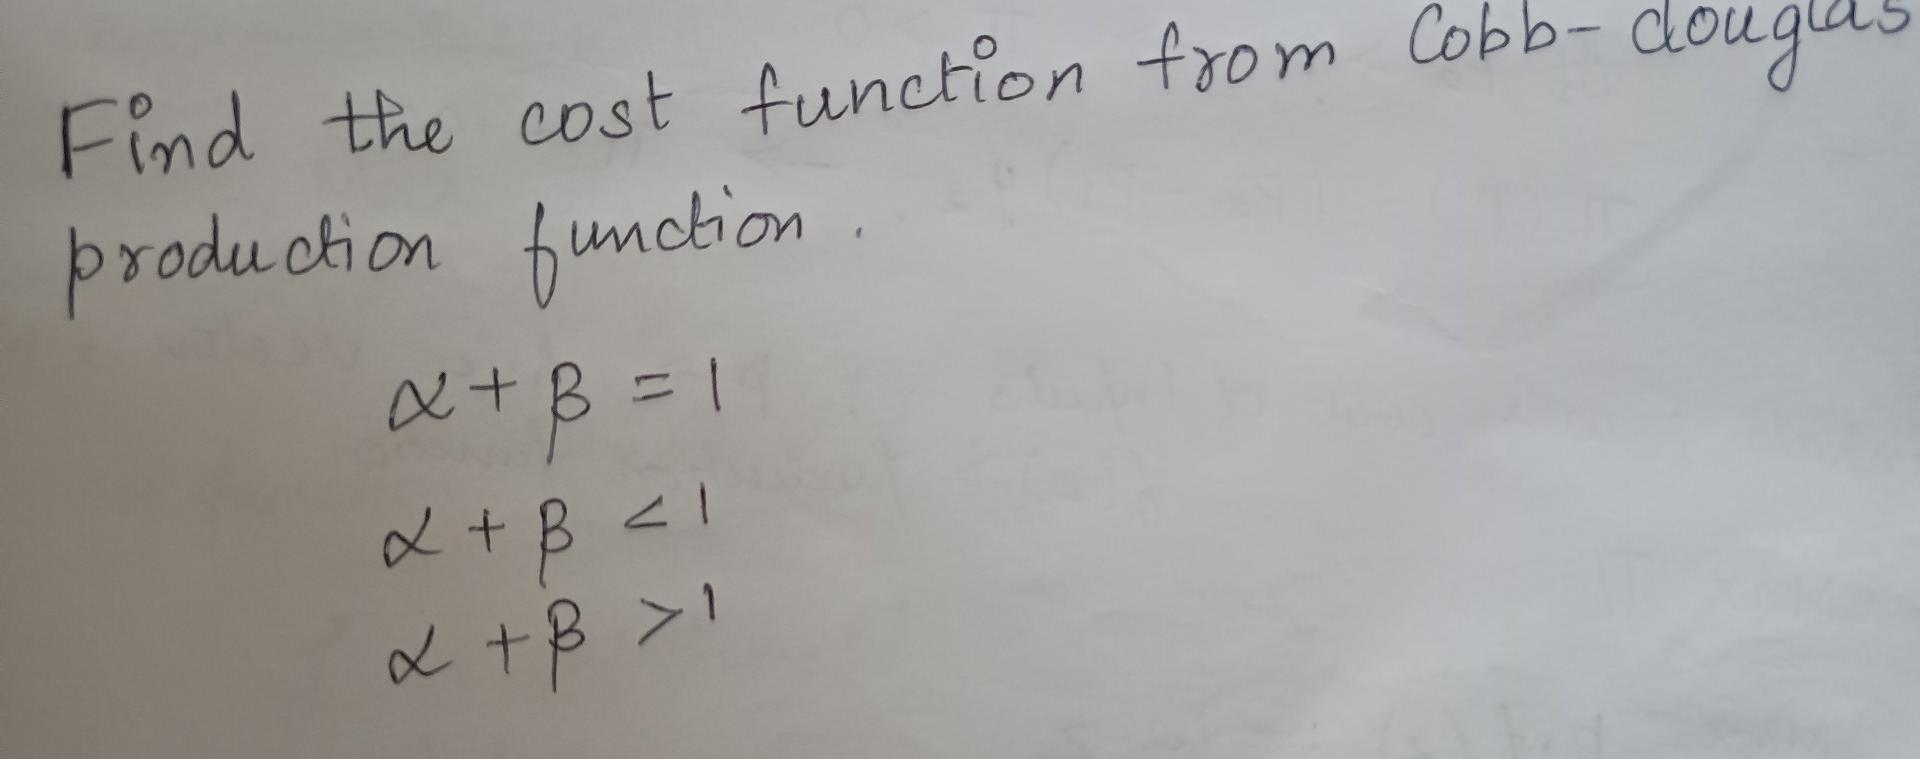 Find the cost function from Cobb-douglas
production function.
α + β = 1
α + β < 1
α + β > 1